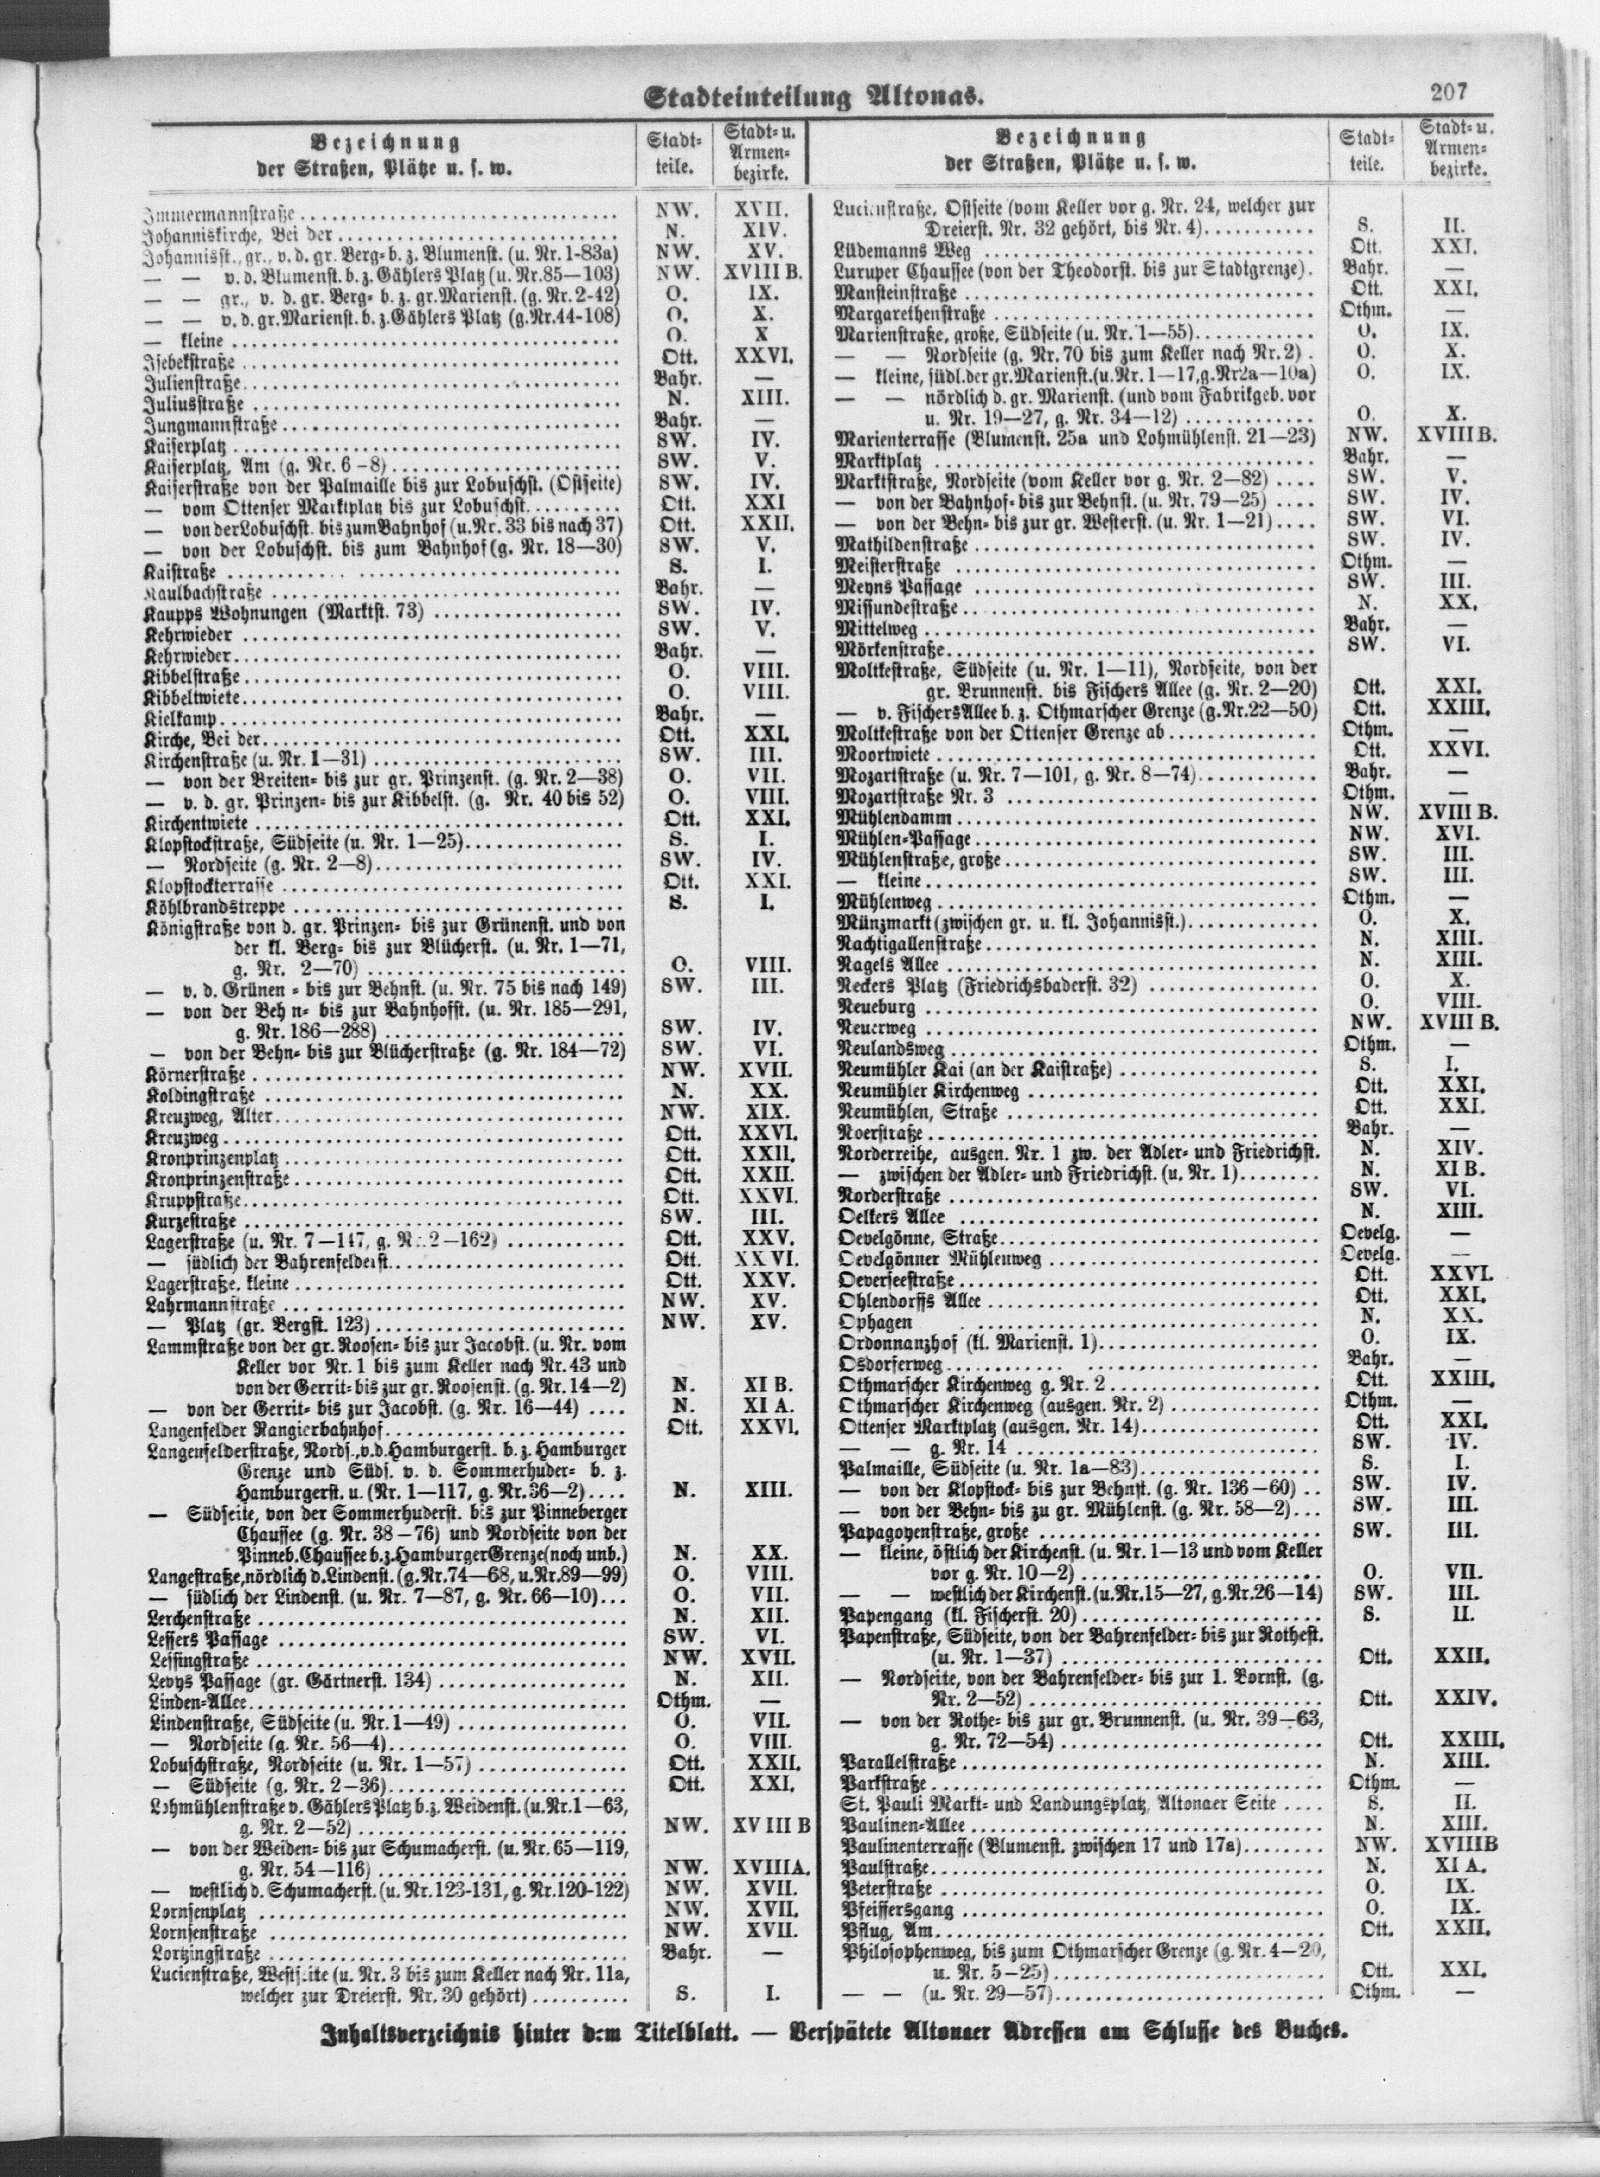 Stadteinteilung Altonas.
207
Bezeichnung der Straßen, Plätze u. s. w.
Stadt- teile.
Stadt- u. Armen- bezirke.
Immermannstraße NW. XVII.
Johanniskirche, Bei der N. XIV.
Johannisst., gr., v. d. gr. Berg- b. z. Blumenst. (u. Nr. 1-83a) NW. XV.
— — v. d. Blumenst. b. z. Gählers Platz (u. Nr. 85—103) NW. XVIII B.
— — gr., v. d. gr. Berg- b. z. gr. Marienst. (g. Nr. 2-42) O. IX.
— — v. d. gr. Marienst. b. z. Gählers Platz (g. Nr. 44-108) O. X.
— kleine O. X
Isebekstraße Ott. XXVI.
Julienstraße Bahr. —
Juliusstraße N. XIII.
Jungmannstraße Bahr. —
Kaiserplatz SW. IV.
Kaiserplatz, Am (g. Nr. 6—8) SW. V.
Kaiserstraße von der Palmaille bis zur Lobuschst. (Ostseite) SW. IV.
— vom Ottenser Marktplatz bis zur Lobuschst. Ott. XXI
— von der Lobuschst. bis zum Bahnhof (u. Nr. 33 bis nach 37) Ott. XXII.
— von der Lobuschst. bis zum Bahnhof (g. Nr. 18—30) SW. V.
Kaistraße S. I.
Kaulbachstraße Bahr. —
Kaupps Wohnungen (Marktst. 73) SW. IV.
Kehrwieder SW. V.
Kehrwieder Bahr. —
Kibbelstraße O. VIII.
Kibbeltwiete O. VIII.
Kielkamp Bahr. —
Kirche, Bei der Ott. XXI.
Kirchenstraße (u. Nr. 1—31) SW. III.
— von der Breiten- bis zur gr. Prinzenst. (g. Nr. 2—38) O. VII.
— v. d. gr. Prinzen- bis zur Kibbelst. (g. Nr. 40 bis 52) O. VIII.
Kirchentwiete Ott. XXI.
Klopstockstraße, Südseite (u. Nr. 1—25) S. I.
— Nordseite (g. Nr. 2—8) SW. IV.
Klopstockterrasse Ott. XXI.
Köhlbrandstreppe S. I.
Königstraße von d. gr. Prinzen- bis zur Grünenst. und von
der kl. Berg- bis zur Blücherst. (u. Nr. 1—71,
g. Nr. 2—70) O. VIII.
— v. d. Grünen- bis zur Behnst. (u. Nr. 75 bis nach 149) SW. III.
— von der Behn- bis zur Bahnhofst. (u. Nr. 185—291,
g. Nr. 186—288) SW. IV.
— von der Behn- bis zur Blücherstraße (g. Nr. 184—72) SW. VI.
Körnerstraße NW. XVII.
Koldingstraße N. XX.
Kreuzweg, Alter NW. XIX.
Kreuzweg Ott. XXVI.
Kronprinzenplatz Ott. XXII.
Kronprinzenstraße Ott. XXII.
Kruppstraße Ott. XXVI.
Kurzestraße SW. III.
Lagerstraße (u. Nr. 7—147, g. Nr. 2—162) Ott. XXV.
— südlich der Bahrenfelderst. Ott. XXVI.
Lagerstraße, kleine Ott. XXV.
Lahrmannstraße NW. XV.
— Platz (gr. Bergst. 123) NW. XV.
Lammstraße von der gr. Roosen- bis zur Jacobst. (u. Nr. vom
Keller vor Nr. 1 bis zum Keller nach Nr. 43 und
von der Gerrit- bis zur gr. Roosenst. (g. Nr. 14—2) N. XI B.
— von der Gerrit- bis zur Jacobst. (g. Nr. 16—44) N. XI A.
Langenfelder Rangierbahnhof Ott. XXVI.
Langenfelderstraße, Nords., v. d. Hamburgerst. b. z. Hamburger
Grenze und Süds. v. d. Sommerhuder- b. z.
Hamburgerst. u. (Nr. 1—117, g. Nr. 36—2) N. XIII.
— Südseite, von der Sommerhuderst. bis zur Pinneberger
Chaussee (g. Nr. 38—76) und Nordseite von der
Pinneb. Chaussee b. z. Hamburger Grenze (noch unb.) N. XX.
Langestraße, nördlich d. Lindenst. (g. Nr. 74—68, u. Nr. 89—99) O. VIII.
— südlich der Lindenst. (u. Nr. 7—87, g. Nr. 66—10) O. VII.
Lerchenstraße N. XII.
Lessers Passage SW. VI.
Lessingstraße NW. XVII.
Levys Passage (gr. Gärtnerst. 134) N. XII.
Linden-Allee Othm. —
Lindenstraße, Südseite (u. Nr. 1—49) O. VII.
— Nordseite (g. Nr. 56—4) O. VIII.
Lobuschstraße, Nordseite (u. Nr. 1—57) Ott. XXII.
— Südseite (g. Nr. 2—36) Ott. XXI.
Lohmühlenstraße v. Gählers Platz b. z. Weidenst. (u. Nr. 1—63,
g. Nr. 2—52) NW. XVIII B
— von der Weiden- bis zur Schumacherst. (u. Nr. 65—119,
g. Nr. 54—116) NW. XVIIIA.
— westlich d. Schumacherst. (u. Nr. 123-131, g. Nr. 120-122) NW. XVII.
Lornsenplatz NW. XVII.
Lornsenstraße NW. XVII.
Lortzingstraße Bahr. —
Lucienstraße, Westseite (u. Nr. 3 bis zum Keller nach Nr. 11a,
welcher zur Dreierst. Nr. 30 gehört) S. I.
Bezeichnung der Straßen, Plätze u. s. w.
Stadt- teile.
Stadt- u. Armen- bezirke.
Lucienstraße, Ostseite (vom Keller vor g. Nr. 24, welcher zur
Dreierst. Nr. 32 gehört, bis Nr. 4) S. II.
Lüdemanns Weg Ott. XXI.
Luruper Chaussee (von der Theodorst. bis zur Stadtgrenze) Bahr. —
Mansteinstraße Ott. XXI.
Margarethenstraße Othm. —
Marienstraße, große, Südseite (u. Nr. 1—55) O. IX.
— — Nordseite (g. Nr. 70 bis zum Keller nach Nr. 2) O. X.
— kleine, südl. der gr. Marienst. (u. Nr. 1—17, g. Nr 2a—10a) O. IX.
— — nördlich d. gr. Marienst. (und vom Fabrikgeb. vor
u. Nr. 19—27, g. Nr. 34—12) O. X.
Marienterrasse (Blumenst. 25a und Lohmühlenst. 21—23) NW. XVIII B.
Marktplatz Bahr. —
Marktstraße, Nordseite (vom Keller vor g. Nr. 2—82) SW. V.
— von der Bahnhof- bis zur Behnst. (u. Nr. 79—25) SW. IV.
— von der Behn- bis zur gr. Westerst. (u. Nr. 1—21) SW. VI.
Mathildenstraße SW. IV.
Meisterstraße Othm. —
Meyns Passage SW. III.
Missundestraße N. XX.
Mittelweg Bahr. —
Mörkenstraße SW. VI.
Moltkestraße, Südseite (u. Nr. 1—11), Nordseite, von der
gr. Brunnenst. bis Fischers Allee (g. Nr. 2—20) Ott. XXI.
— v. Fischers Allee b. z. Othmarscher Grenze (g. Nr. 22—50) Ott. XXIII.
Moltkestraße von der Ottenser Grenze ab Othm. —
Moortwiete Ott. XXVI.
Mozartstraße (u. Nr. 7—101, g. Nr. 8—74) Bahr. —
Mozartstraße Nr. 3 Othm. —
Mühlendamm NW. XVIII B.
Mühlen-Passage NW. XVI.
Mühlenstraße, große SW. III.
— kleine SW. III.
Mühlenweg Othm. —
Münzmarkt (zwischen gr. u. kl. Johannisst.) O. X.
Nachtigallenstraße N. XIII.
Nagels Allee N. XIII.
Neckers Platz (Friedrichsbaderst. 32) O. X.
Neueburg O. VIII.
Neuerweg NW. XVIII B.
Neulandsweg Othm. —
Neumühler Kai (an der Kaistraße) S. I.
Neumühler Kirchenweg Ott. XXI.
Neumühlen, Straße Ott. XXI.
Noerstraße Bahr. —
Norderreihe, ausgen. Nr. 1 zw. der Adler- und Friedrichst. N. XIV.
— zwischen der Adler- und Friedrichst. (u. Nr. 1) N. XI B.
Norderstraße SW. VI.
Oelkers Allee N. XIII.
Oevelgönne, Straße Oevelg. —
Oevelgönner Mühlenweg Oevelg. —
Oeverseestraße Ott. XXVI.
Ohlendorffs Allee Ott. XXI.
Ophagen N. XX.
Ordonnanzhof (kl. Marienst. 1) O. IX.
Osdorferweg Bahr. —
Othmarscher Kirchenweg g. Nr. 2 Ott. XXIII.
Othmarscher Kirchenweg (ausgen. Nr. 2) Othm. —
Ottenser Marktplatz (ausgen. Nr. 14) Ott. XXI.
— — g. Nr. 14 SW. IV.
Palmaille, Südseite (u. Nr. 1a—83) S. I.
— von der Klopstock- bis zur Behnst. (g. Nr. 136—60) SW. IV.
— von der Behn- bis zu gr. Mühlenst. (g. Nr. 58—2) SW. III.
Papagoyenstraße, große SW. III.
— kleine, östlich der Kirchenst. (u. Nr. 1—13 und vom Keller
vor g. Nr. 10—2) O. VII.
— — westlich der Kirchenst. (u. Nr. 15—27, g. Nr. 26—14) SW. III.
Papengang (kl. Fischerst. 20) S. II.
Papenstraße, Südseite, von der Bahrenfelder- bis zur Rothest.
(u. Nr. 1—37) Ott. XXII.
— Nordseite, von der Bahrenfelder- bis zur 1. Bornst. (g.
Nr. 2—52) Ott. XXIV.
— von der Rothe- bis zur gr. Brunnenst. (u. Nr. 39—63,
g. Nr. 72—54) Ott. XXIII.
Parallelstraße N. XIII.
Parkstraße Othm. —
St. Pauli Markt- und Landungsplatz, Altonaer Seite S. II.
Paulinen-Allee N. XIII.
Paulinenterrasse (Blumenst. zwischen 17 und 17a) NW. XVIIIB
Paulstraße N. XI A.
Peterstraße O. IX.
Pfeiffersgang O. IX.
Pflug, Am Ott. XXII.
Philosophenweg, bis zum Othmarscher Grenze (g. Nr. 4—20,
u. Nr. 5—25) Ott. XXI.
— — (u. Nr. 29—57) Othm. —
Inhaltsverzeichnis hinter dem Titelblatt. — Verspätete Altonaer Adressen am Schlusse des Buches.